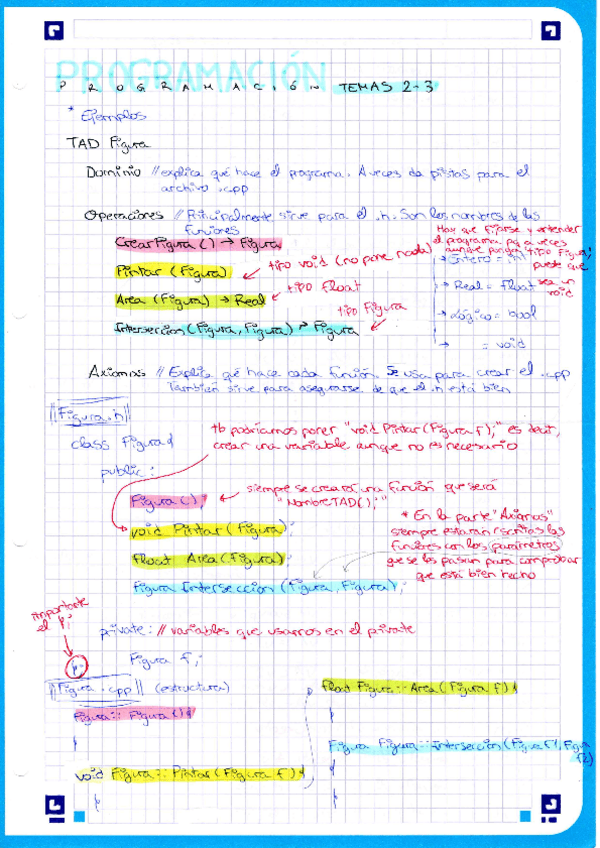 PROGRAMACIÓN TEMAS 2-3
* Ejemplos
TAD Figura
Dominio // explica qué hace el programa. A veces da pistas para el
archivo .cpp
Operaciones // Principalmente sirve para el .h. Son los nombres de las
funciones
CrearFigura () → Figura
Pintar (Figura)
tipo void (no pone nada)
Area (Figura) → Real
tipo float
Interseccion (Figura, Figura) → Figura
tipo Figura
Hay que fijarse y entender
el programa pq a veces
aunque ponga tipo Figura,
puede que
sea un
void
→ Entero = int
→ Real = float
→ Lógico = bool
→ = void
Axiomas // Explica qué hace cada función. Se usa para crear el .cpp
También sirve para asegurarse de que el .h está bien
||Figura.h||
class Figura{
public:
tb podríamos poner "void Pintar(Figura f);" es decir,
crear una variable aunque no es necesario
Figura ();
siempre se creará una función que será
"NombreTAD();"
void Pintar (Figura);
float Area (Figura);
Figura Interseccion (Figura, Figura);
* En la parte "Axiomas"
siempre estarán escritas las
funciones con los parámetros
que se les pasan para comprobar
que está bien hecho
private: // variables que usamos en el private
Figura f;
importante
el };
};
||Figura.cpp|| (estructura)
Figura:: Figura () {
}
void Figura:: Pintar (Figura f) {
}
float Figura:: Area (Figura f) {
}
Figura Figura:: Interseccion (Figura f1, Figura
f2) {
}